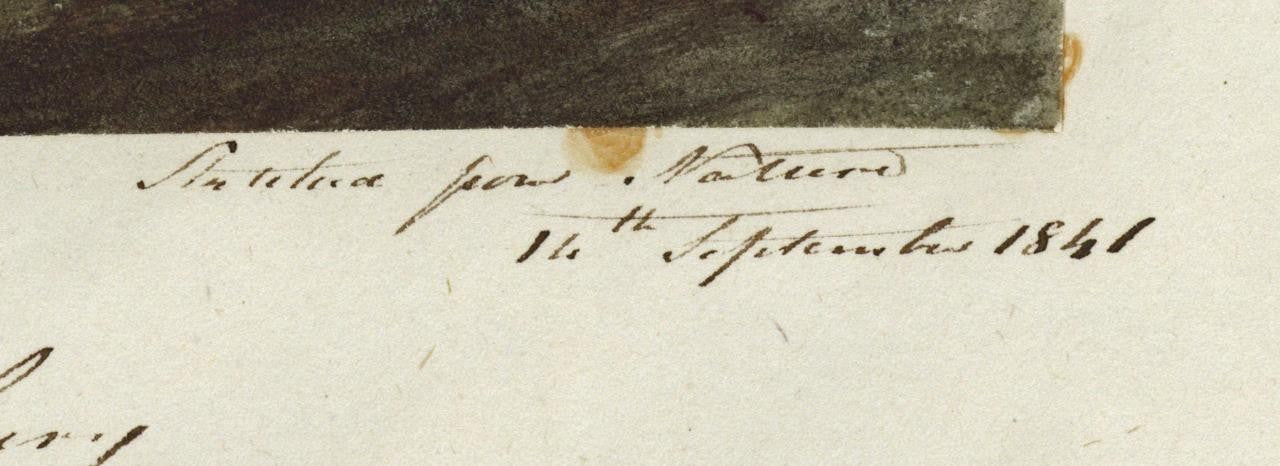 Sketched from Nature
14th September 1841